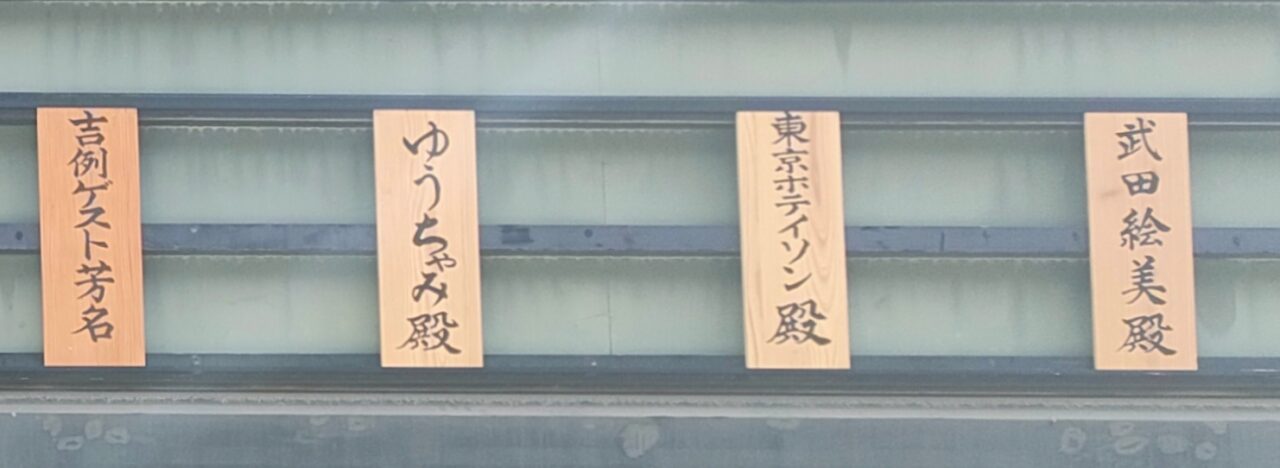 吉例ゲスト芳名
ゆうちゃみ殿
東京ホテイソン殿
武田絵美殿